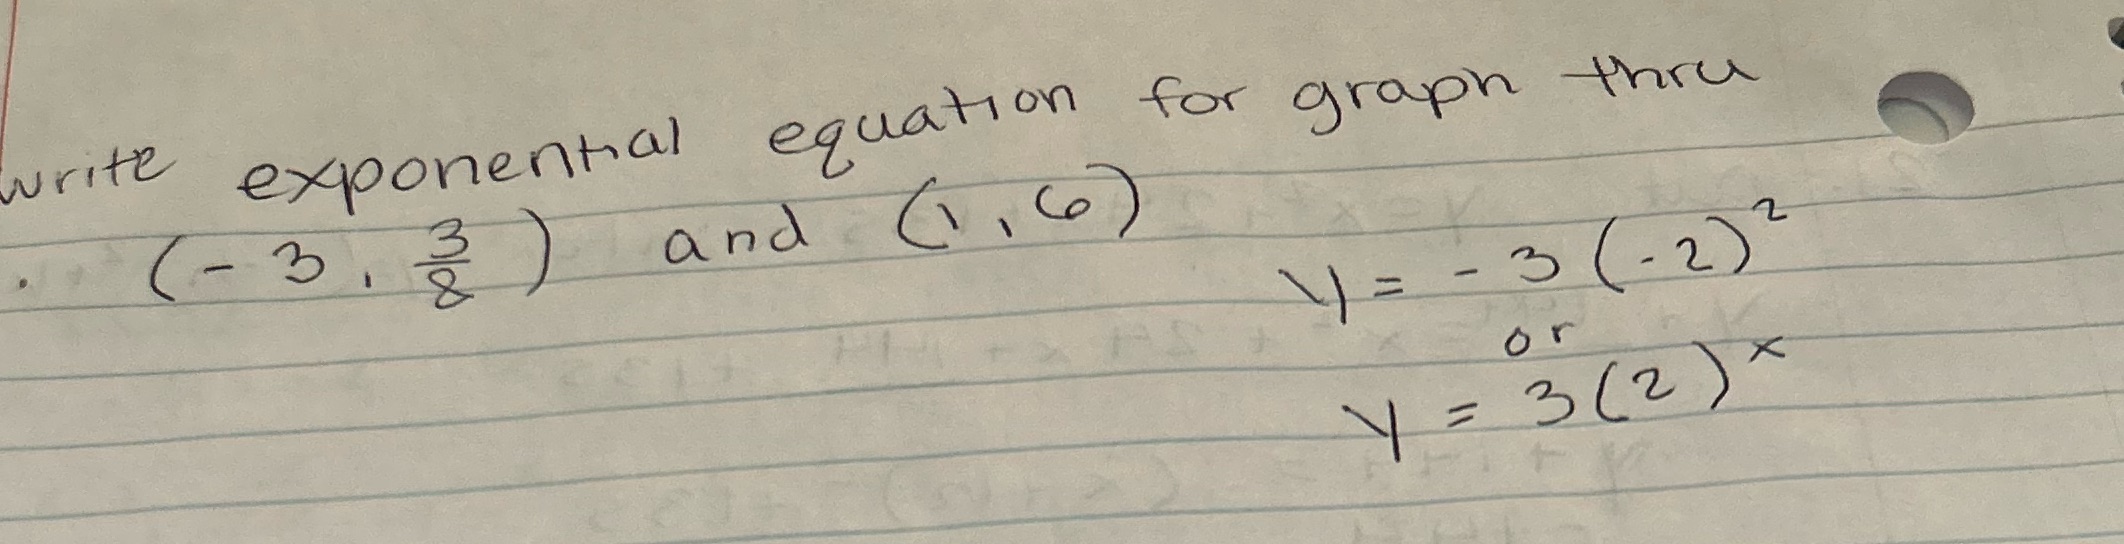 write exponential equation for graph thru
. (-3, 3/8) and (1, 6)
y = -3(-2)²
or
y = 3(2)ˣ